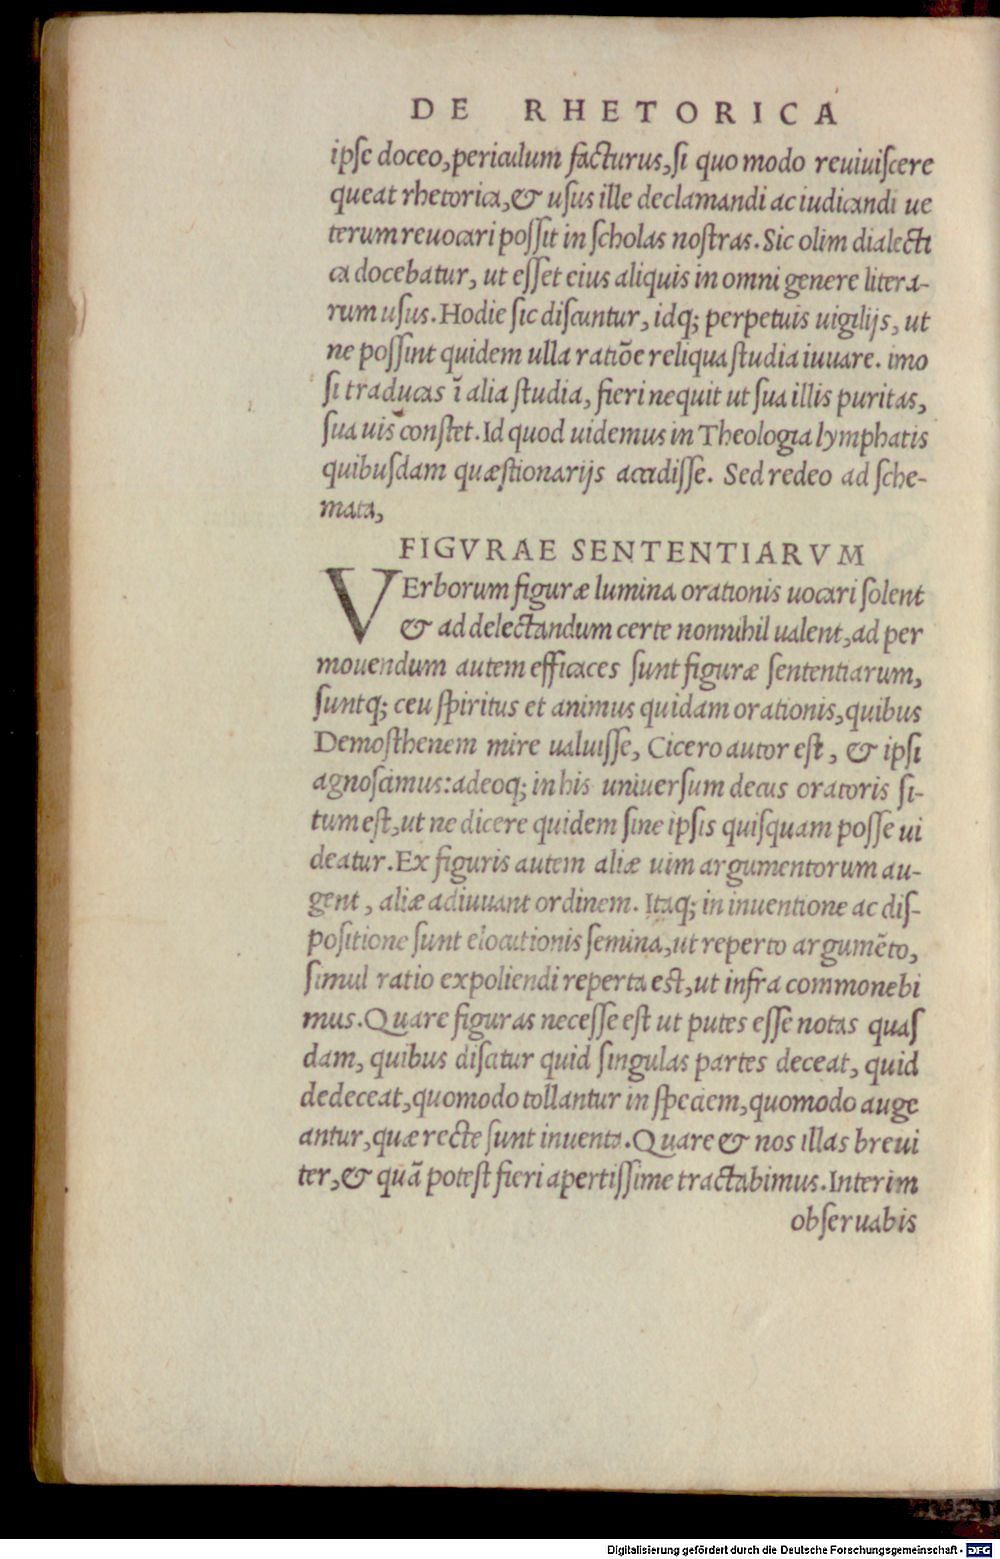 DE RHETORICA
ipse doceo, periculum facturus, si quo modo reuiuiscere
queat rhetorica, & usus ille declamandi ac iudicandi ue
terum reuocari possit in scholas nostras. Sic olim dialecti
ca docebatur, ut esset eius aliquis in omni genere litera-
rum usus. Hodie sic discuntur, idq; perpetuis uigilijs, ut
ne possint quidem ulla ratiõe reliqua studia iuuare. imo
si traducas ĩ alia studia, fieri nequit ut sua illis puritas,
sua uis constet. Id quod uidemus in Theologia lymphatis
quibusdam quæstionarijs accidisse. Sed redeo ad sche-
mata,
FIGVRAE SENTENTIARVM
VErborum figuræ lumina orationis uocari solent
& ad delectandum certe nonnihil ualent, ad per
mouendum autem efficaces sunt figuræ sententiarum,
suntq; ceu spiritus et animus quidam orationis, quibus
Demosthenem mire ualuisse, Cicero autor est, & ipsi
agnoscimus: adeoq; in his uniuersum decus oratoris si-
tum est, ut ne dicere quidem sine ipsis quisquam posse ui
deatur. Ex figuris autem aliæ uim argumentorum au-
gent, aliæ adiuuant ordinem. Itaq; in inuentione ac dis-
positione sunt elocutionis semina, ut reperto argumẽto,
simul ratio expoliendi reperta est, ut infra commonebi
mus. Quare figuras necesse est ut putes esse notas quas
dam, quibus discatur quid singulas partes deceat, quid
dedeceat, quomodo tollantur in speciem, quomodo auge
antur, quæ recte sunt inuenta. Quare & nos illas breui
ter, & quã potest fieri apertissime tractabimus. Interim
obseruabis
Digitalisierung gefördert durch die Deutsche Forschungsgemeinschaft - DFG